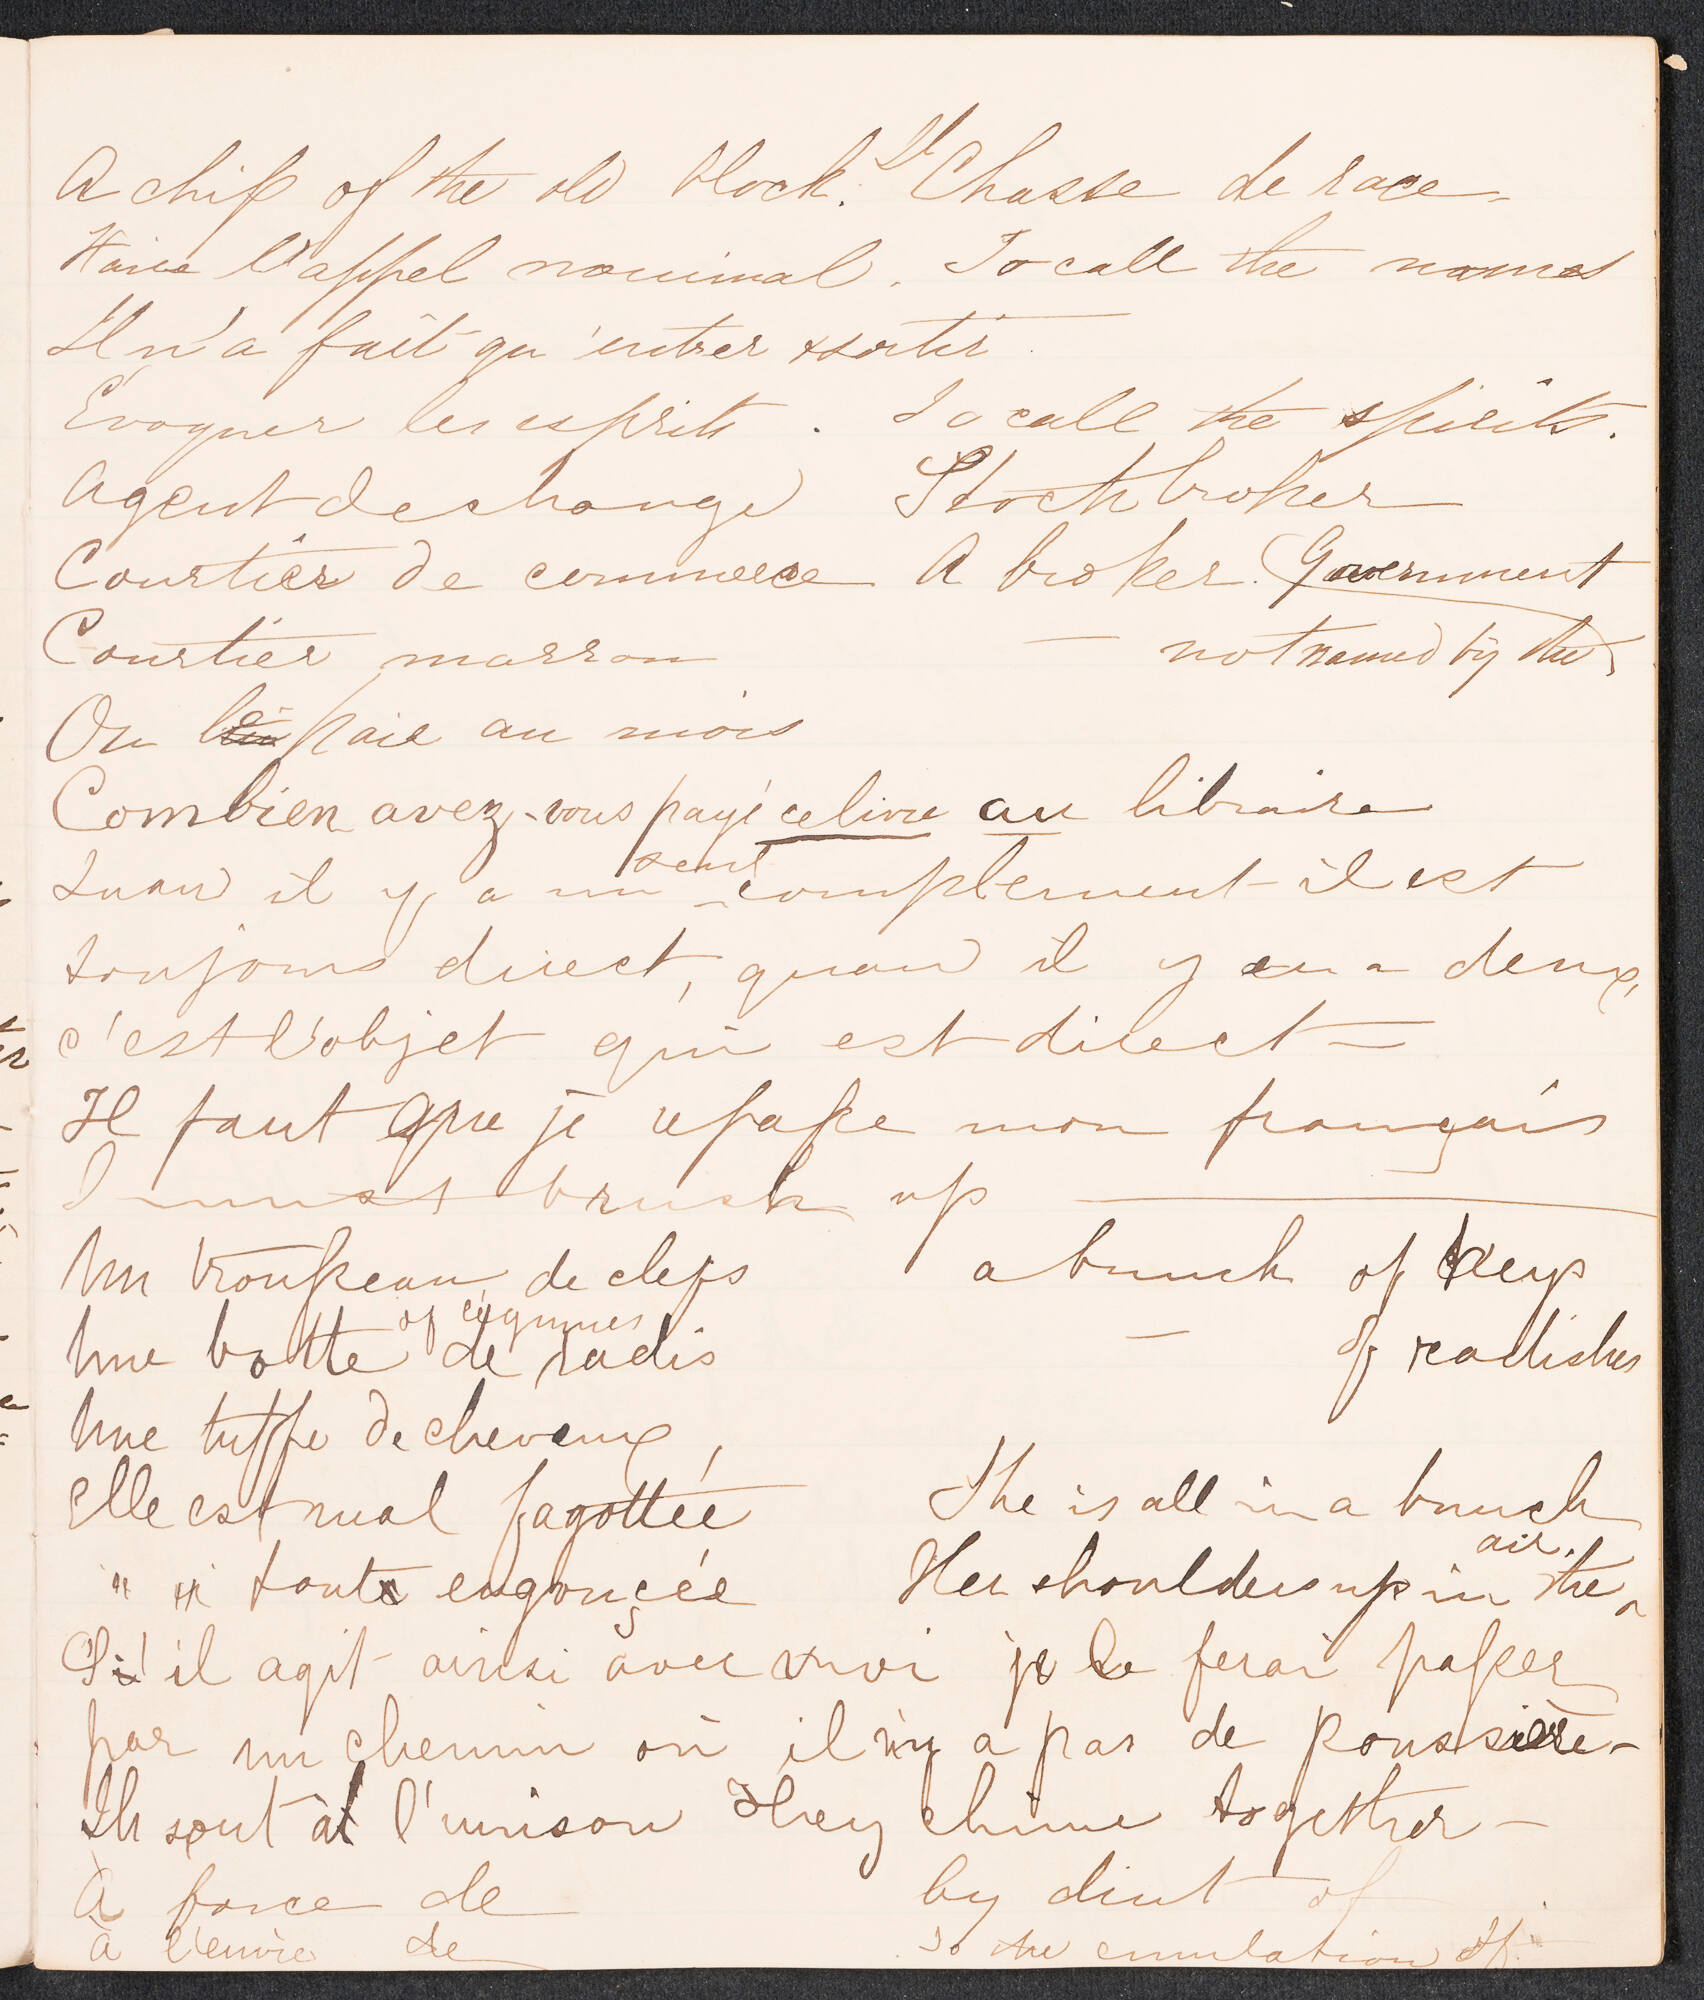 A chip of the old block. Il Chasse de race.
Faire l'appel nominal. To call the names
Il n'a fait qu'entrer & sortir.
Évoquer les esprits. To call the spirits.
Agent de change Stock broker
Courtier de commerce A broker. (Government
Courtier marron — not named by the)
On le paie au mois
Combien avez-vous payé ce livre au libraire
Quand il y a un seul complement il est
toujours direct, quand il y en a deux,
c'est l'objet qui est direct —
Il faut que je repasse mon français
I must brush up ———
Un trousseau de clefs a bunch of keys
of légumes
Une botte de radis — of radishes
Une tuffe de cheveux,
Elle est mal fagottée She is all in a bunch
" " toute engoncée Her shoulders up in the air.
S'il agit ainsi avec moi je le ferai passer
par un chemin où il n'y a pas de poussière —
Ils sont à l'unison They chime together —
À force de by dint of
à l'envie de To the emulation of